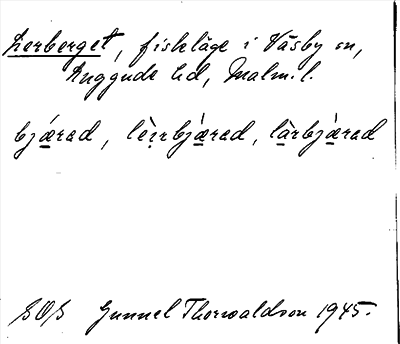 Lerberget, fiskeläge i Väsby sn,
Luggude hd, Malm. l.
bjæ̀rad, lè̱rrbjæ̀rad, læ̀rbjæ̀rad
SOS Gunnel Thorwaldson 1945.